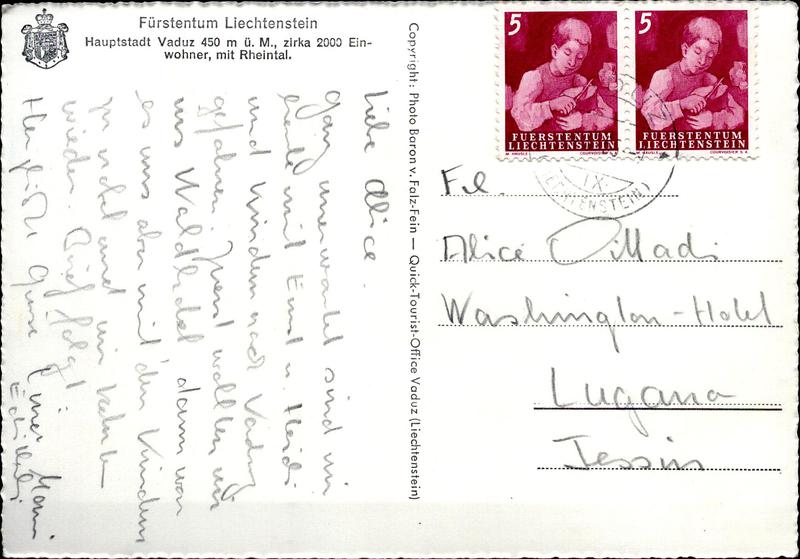 Fürstentum Liechtenstein
Hauptstadt Vaduz 450 m ü. M., zirka 2000 Ein-
wohner, mit Rheintal.
Liebe Alice.
Ganz unerwartet sind wir
heute mit Ernst u. Heidi
und Kindern nach Vaduz
gefahren. Zuerst wollten wir
ins Waldhotel dann war
es uns aber mit den Kindern
wieder. Brief folgt
Herzliche Grüsse Eure Mami
Copyright: Photo Baron v. Falz-Fein — Quick-Tourist-Office Vaduz (Liechtenstein)
5
FUERSTENTUM
LIECHTENSTEIN
COURVOISIER S.A.
5
FUERSTENTUM
LIECHTENSTEIN
COURVOISIER S.A.
IX
(LIECHTENSTEIN)
Frl.
Alice
Washington-Hotel
Lugano
Tessin